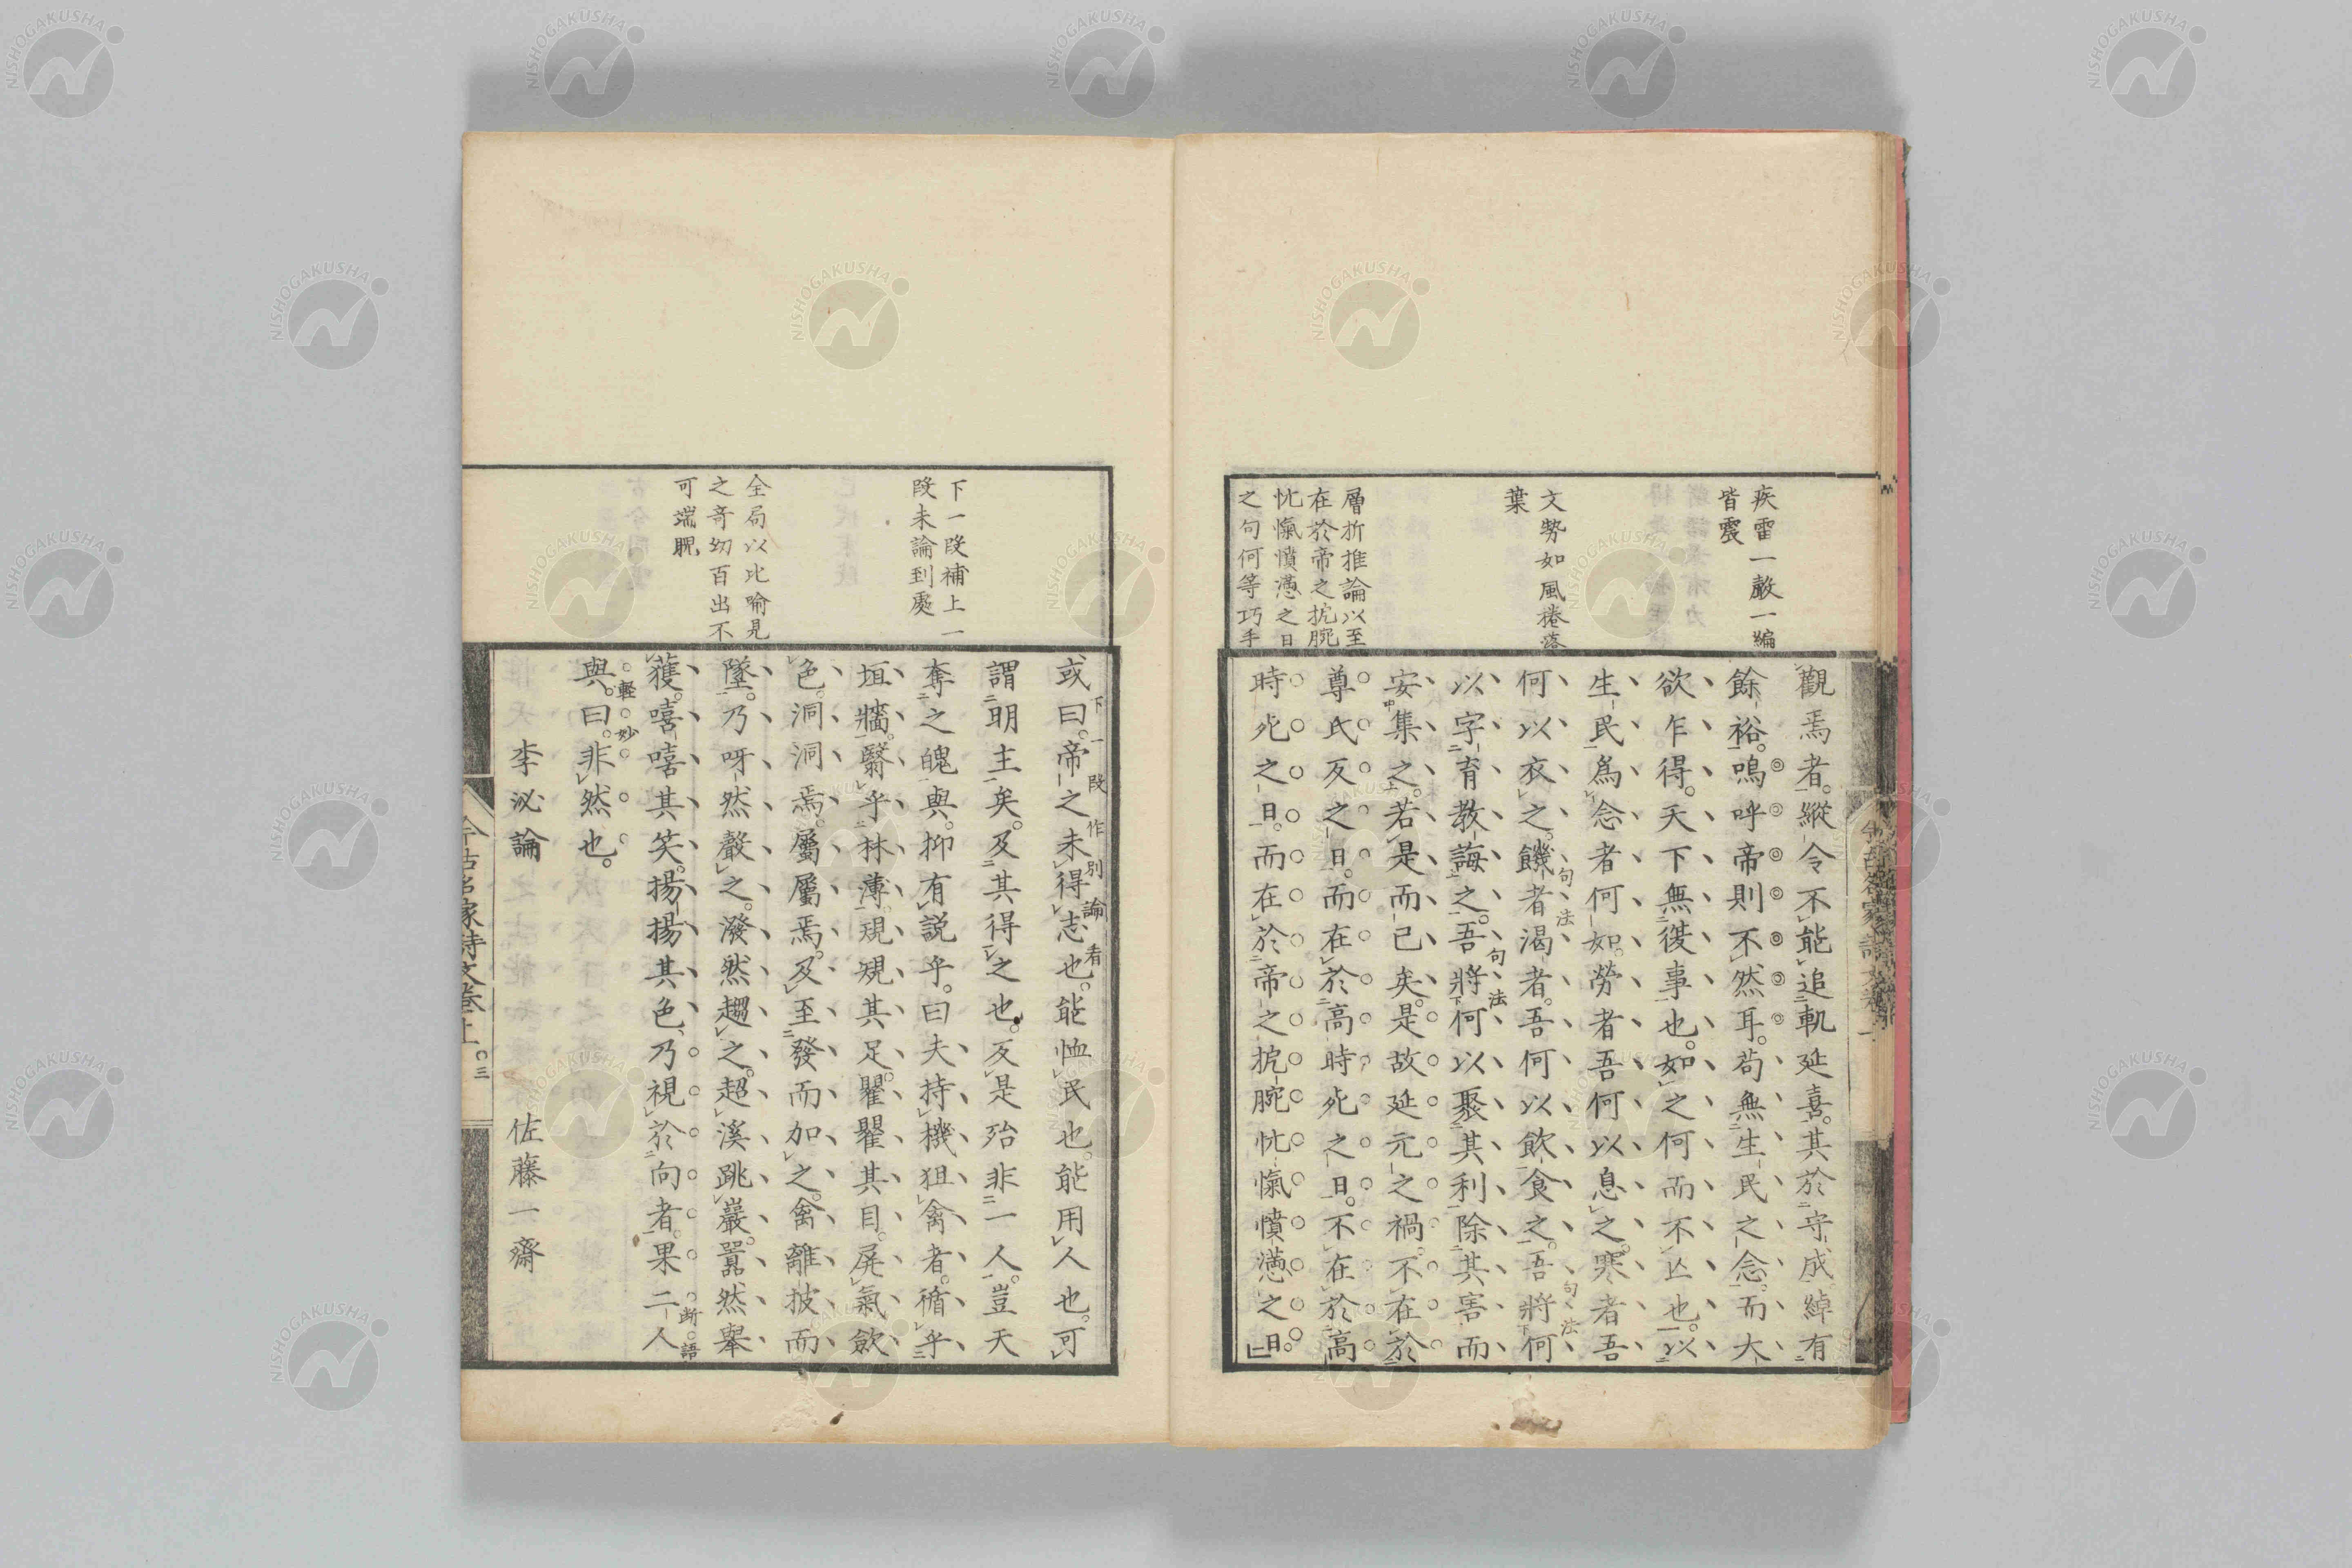 疾雷一聲一編
皆震
文勢如風捲落
葉
層折推論以至
在於帝之扼腕
忼愾憤懣之日
之句何等巧手
觀焉者。縱令不能追軌延喜。其於守成綽有
餘裕。嗚呼帝則不然耳。苟無生民之念。而大
欲乍得。天下無復事也。如之何而不亾也。以
生民爲念者何如。勞者吾何以息之。寒者吾
何以衣之。饑者渴者。吾何以飲食之。吾將何
句法
句法
以字育教誨之。吾將何以聚其利除其害而
句法
安集之。若是而已矣。是故延元之禍。不在於
尊氏反之日。而在於高時死之日。不在於高
時死之日。而在於帝之扼腕忼愾憤懣之日。
下一段補上一
段未論到處
全局以比喻見
之奇幻百出不
可端睨
或曰。帝之未得志也。能恤民也。能用人也。可
下一段作別論看
謂明主矣。及其得之也。反是殆非一人。豈天
奪之魄與。抑有說乎。曰夫持機狙禽者。循乎
垣牆。翳乎林薄。規規其足。瞿瞿其目。屏氣歛
色。洞洞焉。屬屬焉。及至發而加之。禽離披而
墜。乃呀然聲之。潑然趨之。超溪跳巖。囂然舉
獲。嘻嘻其笑。揚揚其色、乃視於向者。果二人
斷語
與。曰。非然也。
軽妙
李泌論　佐藤一齋
今古名家詩文卷上　三